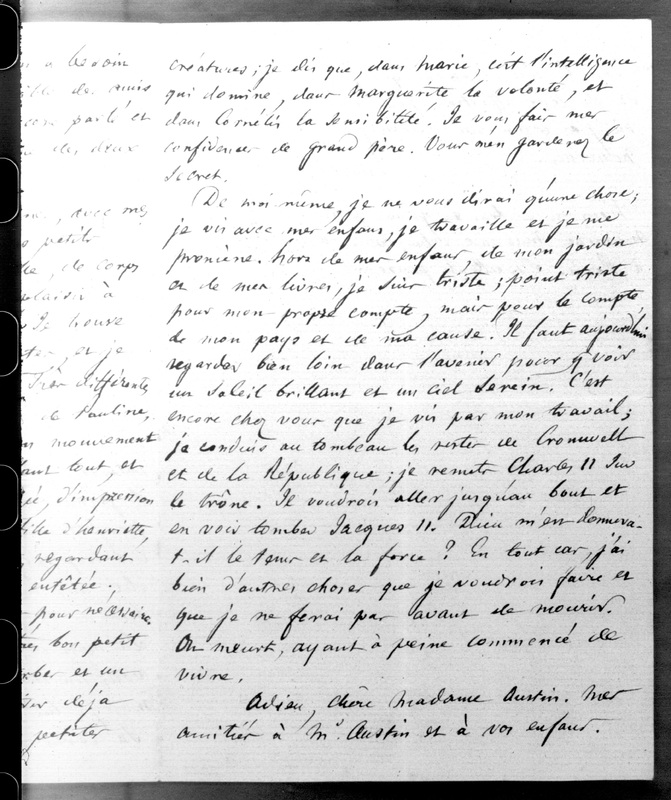 a besoin
et
des deux
avec mes
petits
de corps
plaisir à
Je trouve
et je
Très différentes
de Pauline,
mouvement
tout, et
d'impression
d'henriette,
regardant
entêtée.
pour nécessaire,
bon petit
et un
déja
créatures; je dis que, dans Marie, c'est l'intelligence
qui domine, dans Marguerite la volonté, et
dans Cornélis la sensibilité. Je vous fais mes
confidences de grand père. Vous m'en garderez le
secret.
De moi même, je ne vous dirai qu'une chose;
je vis avec mes enfans, je travaille et je me
promène. hors de mes enfans, de mon jardin
et de mes livres, je suis triste; point triste
pour mon propre compte, mais pour le compte
de mon pays et de ma cause. Il faut aujourd'hui
regarder bien loin dans l'avenir pour y voir
un soleil brillant et un ciel serein. C'est
encore chez vous que je vis par mon travail;
je conduis au tombeau les restes de Cromwell
et de la République; je remets Charles II sur
le trône. Je voudrois aller jusqu'au bout et
en voir tomber Jacques II. Dieu m'en donnera-
t-il le tems et la force? En tout cas, j'ai
bien d'autres choses que je voudrois faire et
que je ne ferai pas avant de mourir.
On meurt, ayant à peine commencé de
vivre.
Adieu, chère Madame Austin. Mes
amitiés à Mr. Austin et à vos enfans.